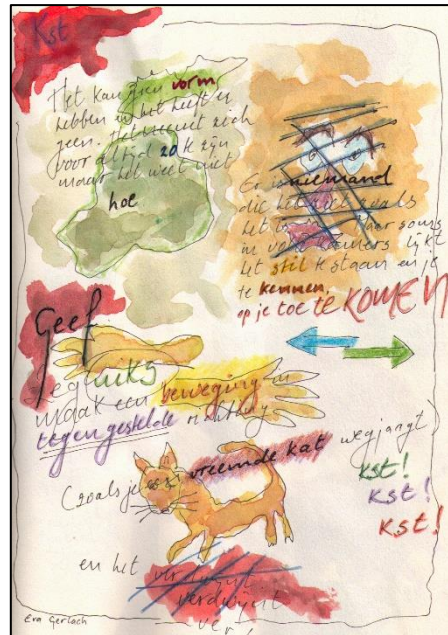 Kst
Het kan geen vorm
hebben en het heeft er
geen. Het neemt zich
voor altijd zo te zijn
maar het weet niet
hoe
Er is niemand
die het ziet zoals
het is. Maar soms
in volle kamers lijkt
het stil te staan en je
te kennen,
op je toe te KOMEN
Geef
Zeg niks
maak een beweging in
tegengestelde richting
(zoals je een vreemde kat wegjaagt)
kst!
kst!
kst!
en het
verdwijnt
Eva Gerlach